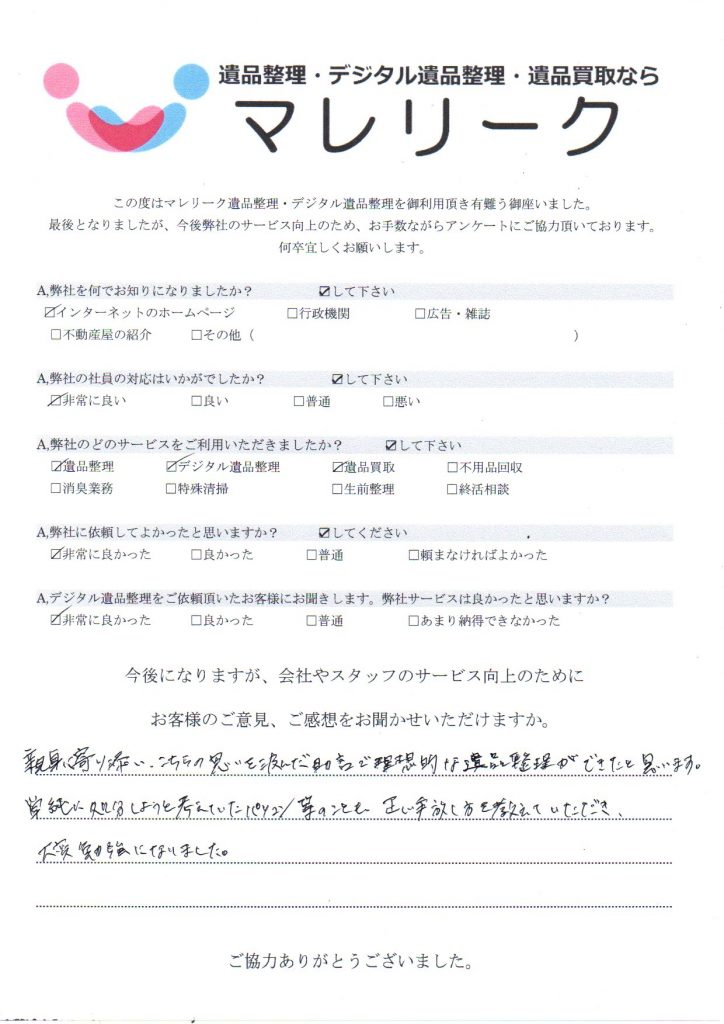 遺品整理・デジタル遺品整理・遺品買取なら
マレリーク
この度はマレリーク遺品整理・デジタル遺品整理を御利用頂き有難う御座いました。
最後となりましたが、今後弊社のサービス向上のため、お手数ながらアンケートにご協力頂いております。
何卒宜しくお願いします。
A,弊社を何でお知りになりましたか？ ☑して下さい
☑インターネットのホームページ □行政機関 □広告・雑誌
□不動産屋の紹介 □その他（ ）
A,弊社の社員の対応はいかがでしたか？ ☑して下さい
☑非常に良い □良い □普通 □悪い
A,弊社のどのサービスをご利用いただきましたか？ ☑して下さい
☑遺品整理 ☑デジタル遺品整理 ☑遺品買取 □不用品回収
□消臭業務 □特殊清掃 □生前整理 □終活相談
A,弊社に依頼してよかったと思いますか？ ☑してください
☑非常に良かった □良かった □普通 □頼まなければよかった
A,デジタル遺品整理をご依頼頂いたお客様にお聞きします。弊社サービスは良かったと思いますか？
☑非常に良かった □良かった □普通 □あまり納得できなかった
今後になりますが、会社やスタッフのサービス向上のために
お客様のご意見、ご感想をお聞かせいただけますか。
親身に寄り添い、こちらの思いを汲んだ助言で理想的な遺品整理ができたと思います。
単純に処分しようと考えていたパソコン等のことも正しい手放し方を教えていただき、
大変勉強になりました。
ご協力ありがとうございました。